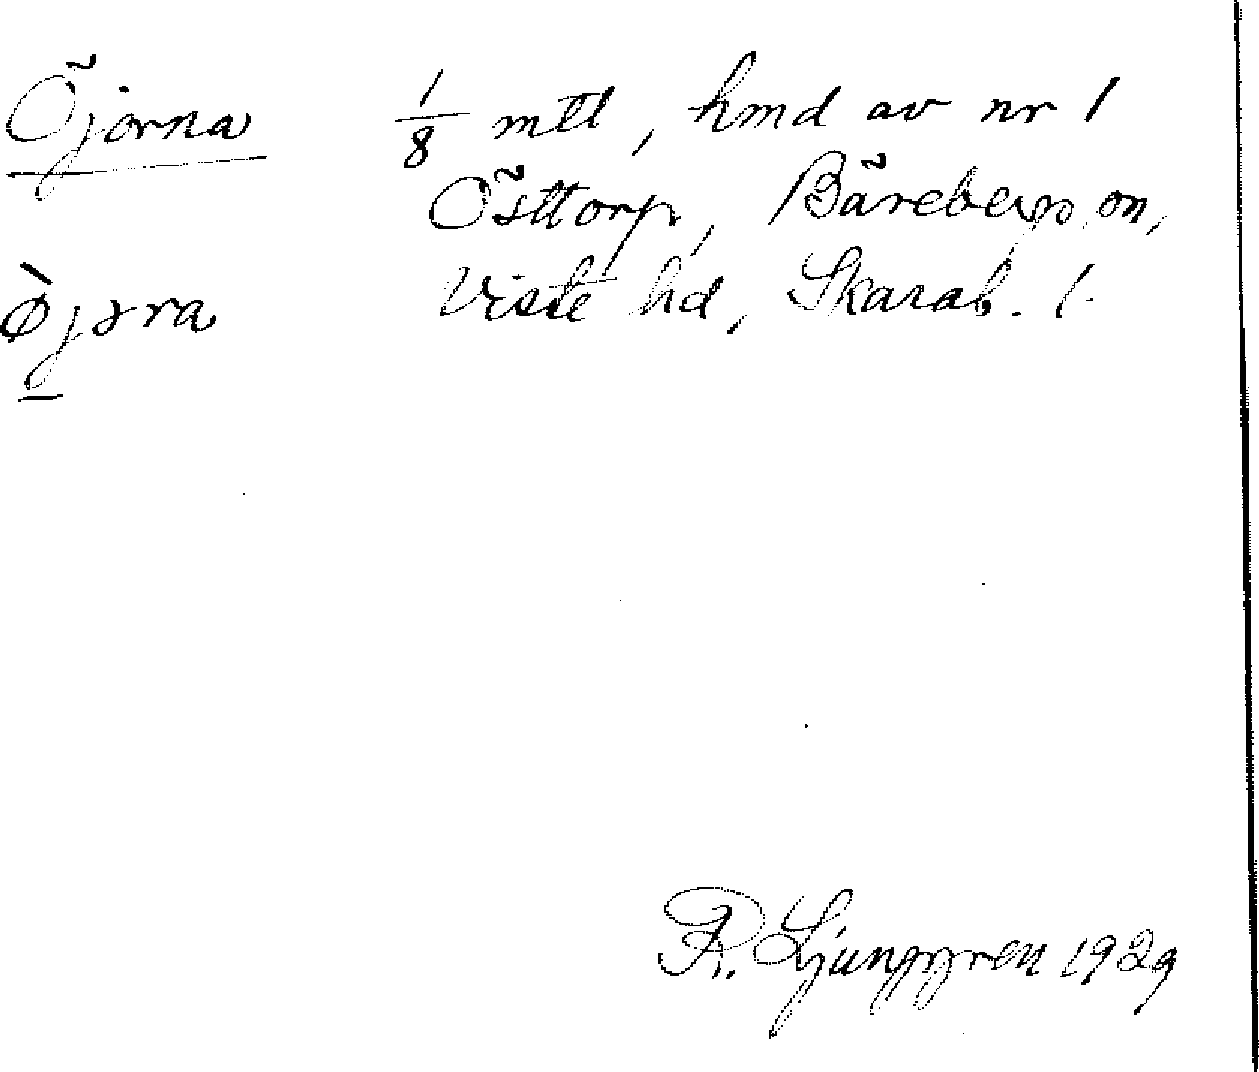 Öjorna 1/8 mtl, hmd av nr 1
Östtorp, Bärebergs sn,
Viste hd, Skarab. l.
R. Ljunggren 1929